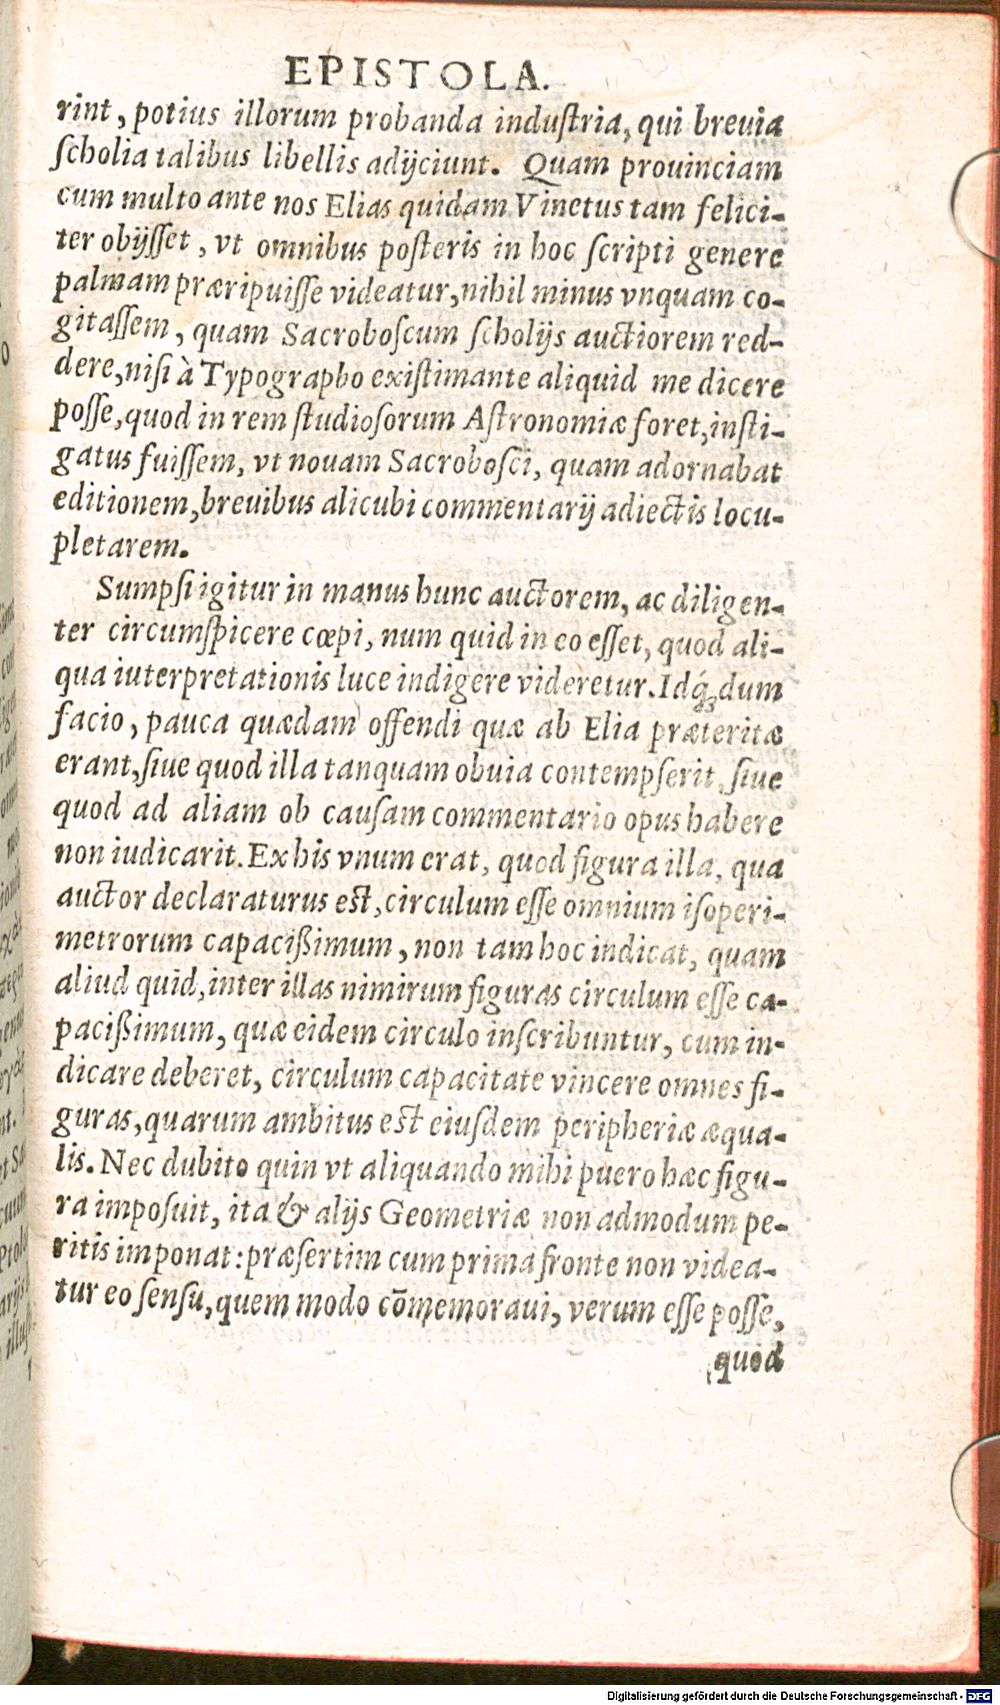 EPISTOLA.
rint, potius illorum probanda induſtria, qui breuia
ſcholia talibus libellis adijciunt. Quam prouinciam
cum multo ante nos Elias quidam Vinetus tam felici-
ter obijſſet, vt omnibus poſteris in hoc ſcripti genere
palmam præripuiſſe videatur, nihil minus vnquam co-
gitaſſem, quam Sacroboſcum ſcholijs auctiorem red-
dere, niſi à Typographo exiſtimante aliquid me dicere
poſſe, quod in rem ſtudioſorum Aſtronomiæ foret, inſti-
gatus fuiſſem, vt nouam Sacroboſci, quam adornabat
editionem, breuibus alicubi commentarij adiectis locu-
pletarem.
Sumpſi igitur in manus hunc auctorem, ac diligen-
ter circumſpicere cœpi, num quid in eo eſſet, quod ali-
qua iuterpretationis luce indigere videretur. Idq́ꝫ dum
facio, pauca quædam offendi quæ ab Elia præteritæ
erant, ſiue quod illa tanquam obuia contempſerit, ſiue
quod ad aliam ob cauſam commentario opus habere
non iudicarit. Ex his vnum erat, quod figura illa, qua
auctor declaraturus eſt, circulum eſſe omnium iſoperi-
metrorum capacißimum, non tam hoc indicat, quam
aliud quid, inter illas nimirum figuras circulum eſſe ca-
pacißimum, quæ eidem circulo inſcribuntur, cum in-
dicare deberet, circulum capacitate vincere omnes fi-
guras, quarum ambitus eſt eiuſdem peripheriæ æqua-
lis. Nec dubito quin vt aliquando mihi puero hæc figu-
ra impoſuit, ita & alijs Geometriæ non admodum pe-
ritis imponat: præſertim cum prima fronte non videa-
tur eo ſenſu, quem modo cōmemoraui, verum eſſe poſſe,
quod
Digitalisierung gefördert durch die Deutsche Forschungsgemeinschaft - DFG